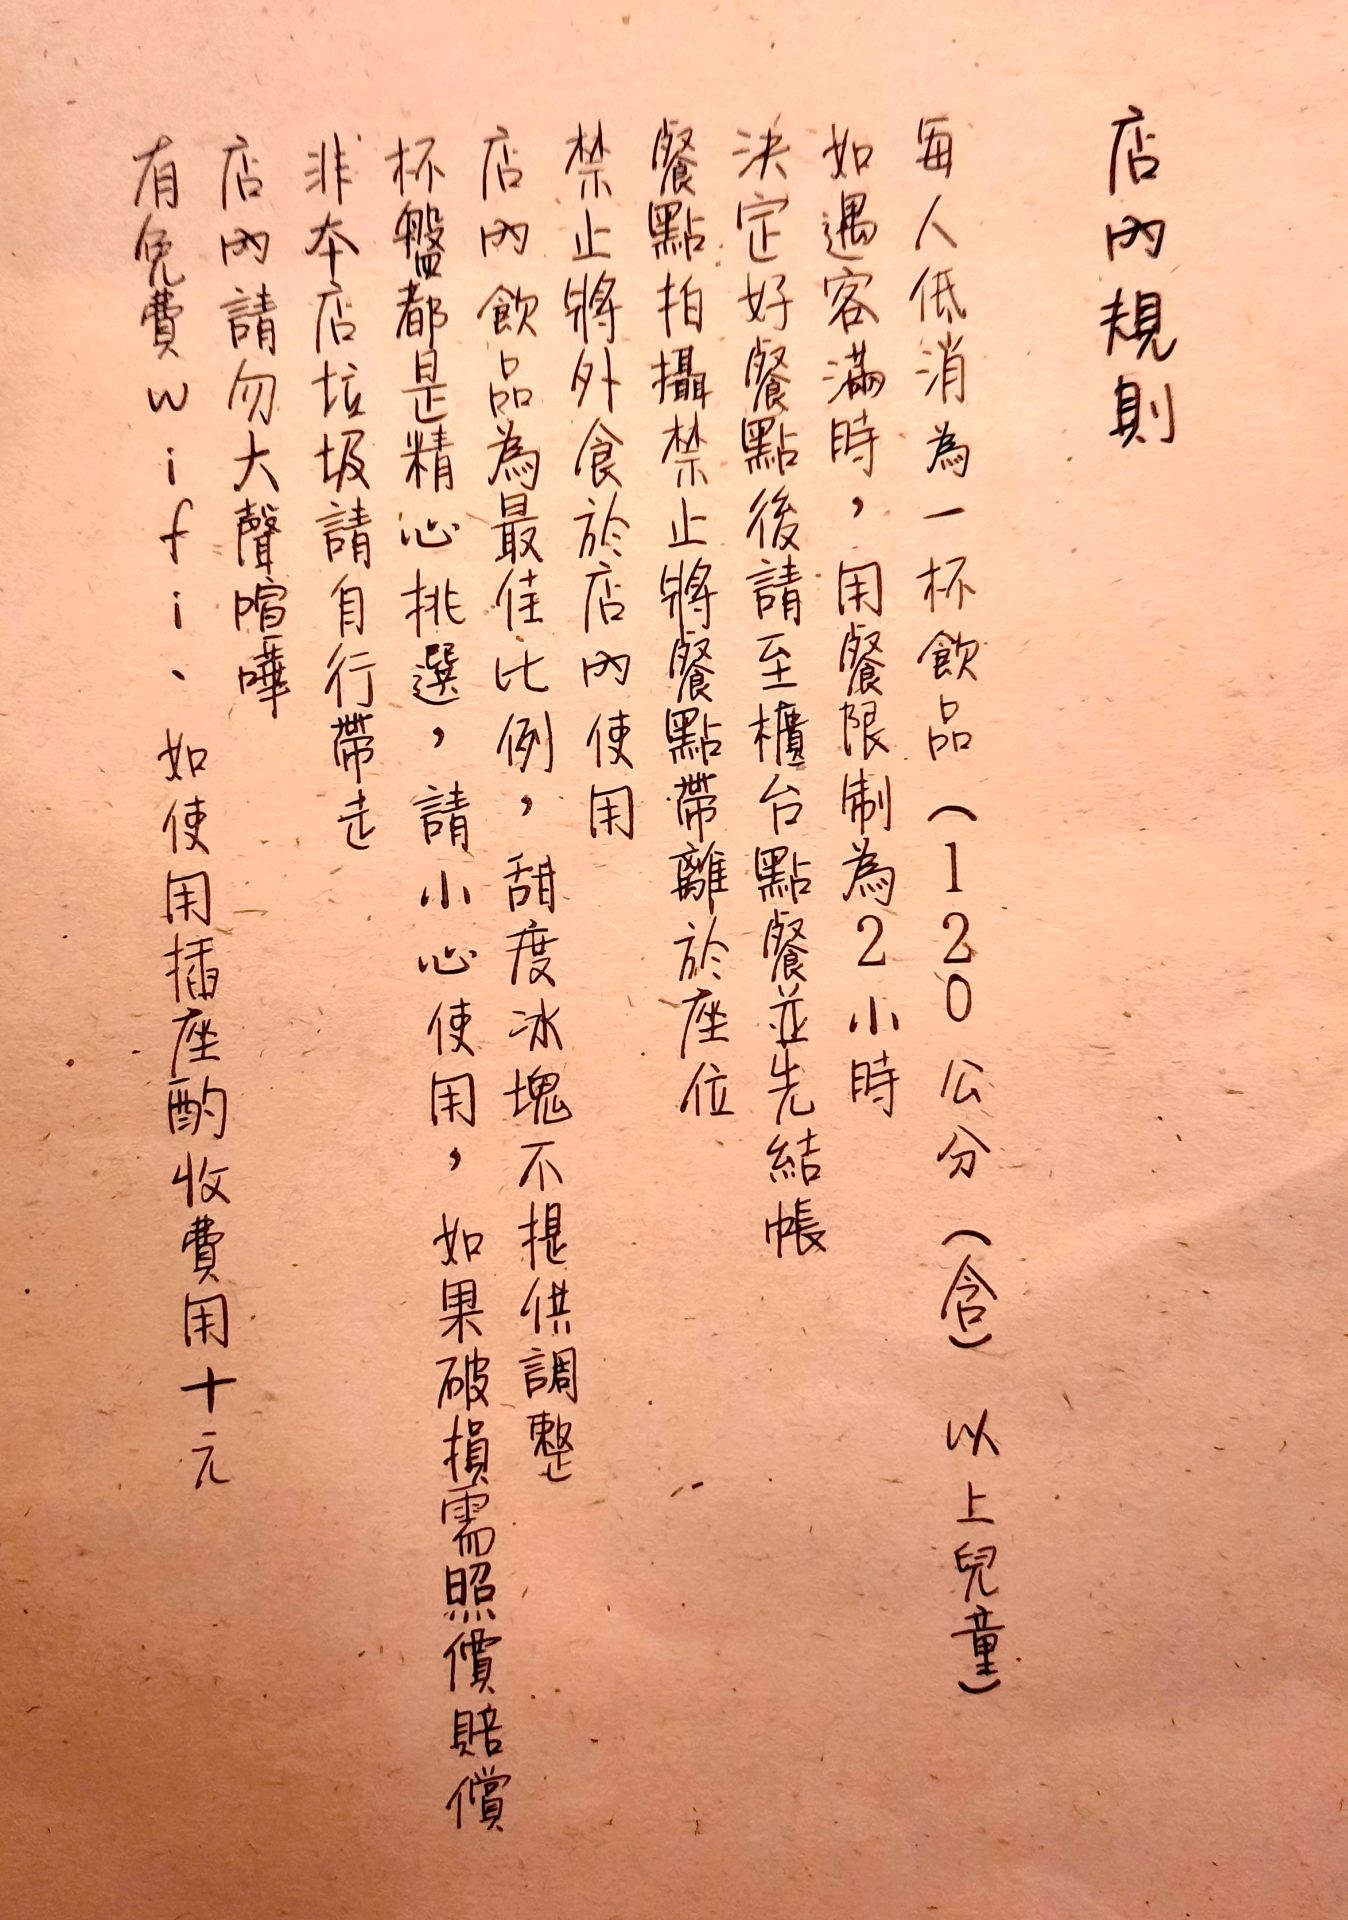 店內規則
每人低消為一杯飲品（120公分（含）以上兒童）
如遇客滿時，用餐限制為2小時
決定好餐點後請至櫃台點餐並先結帳
餐點拍攝禁止將餐點帶離於座位
禁止將外食於店內使用
店內飲品為最佳比例，甜度冰塊不提供調整
杯盤都是精心挑選，請小心使用，如果破損需照價賠償
非本店垃圾請自行帶走
店內請勿大聲喧嘩
有免費wifi、如使用插座酌收費用十元